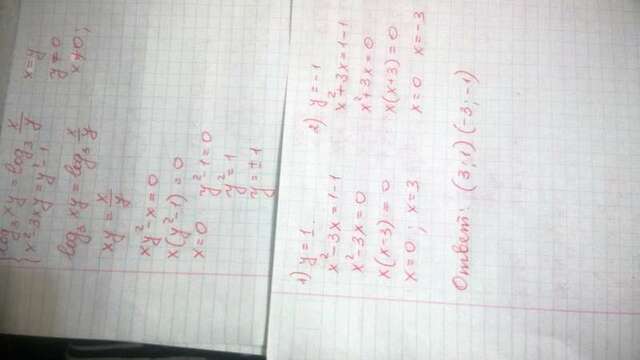 log₃ xy = log₃ x/y
x² - 3xy = y² - 1
x=y
y≠0
x≠0;
log₃ xy = log₃ x/y
xy = x/y
xy² - x = 0
x(y² - 1) = 0
x=0 y² - 1 = 0
y² = 1
y = ±1
1) y = 1
x² - 3x = 1-1
x² - 3x = 0
x(x-3) = 0
x = 0 ; x = 3
2) y = -1
x² + 3x = 1-1
x² + 3x = 0
x(x+3) = 0
x = 0 x = -3
Ответ: (3; 1) (-3; -1)